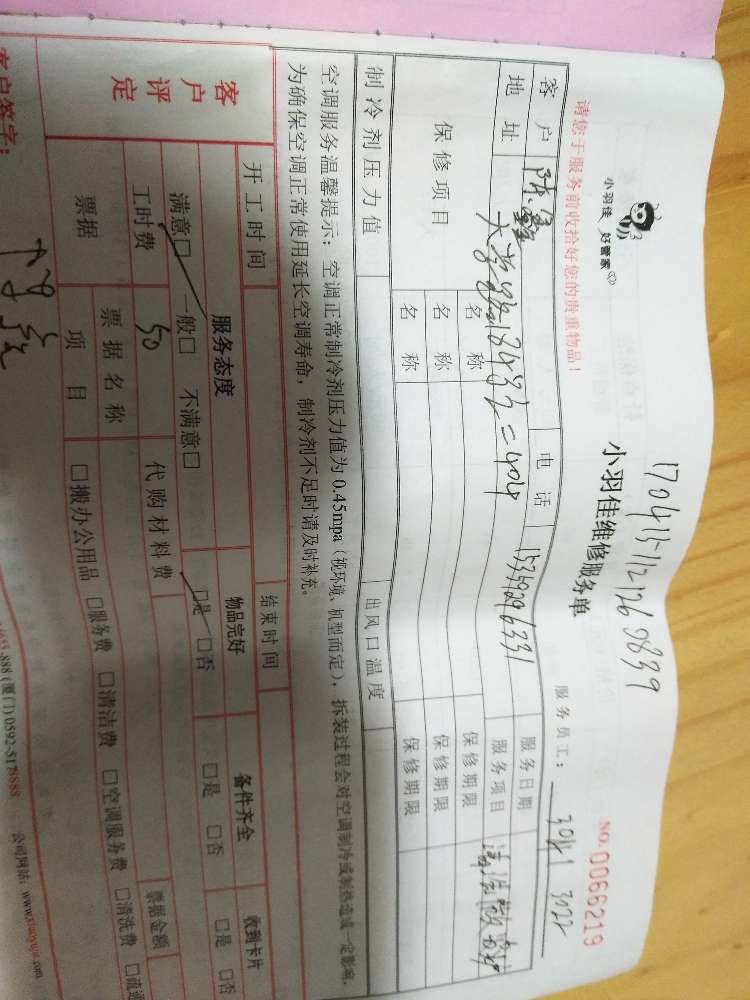 170415-112126 9839
小羽佳 好管家
小羽佳维修服务单
NO. 0066219
请您于服务前收拾好您的贵重物品!
服务员工:
客户
电话
服务日期
地址
服务项目
保修项目
名称
保修期限
名称
保修期限
名称
保修期限
制冷剂压力值
出风口温度
空调服务温馨提示:空调正常制冷剂压力值为0.45mpa(视环境、机型而定),拆装过程会对空调制冷或制热造成一定影响,
为确保空调正常使用延长空调寿命,制冷剂不足时请及时补充。
开工时间
结束时间
客户评定
服务态度
物品完好
备件齐全
收到卡片
满意□ 一般□ 不满意□
□是 □否
□是 □否
□是 □否
工时费
50
代购材料费
票据
票据名称
票据金额
项目
□搬办公用品 □服务费 □清洁费 □空调服务费 □清洗费 □疏通
客户签字:
-888(厦门)0592-5178688 公司网站:www.xiaoyujia.com